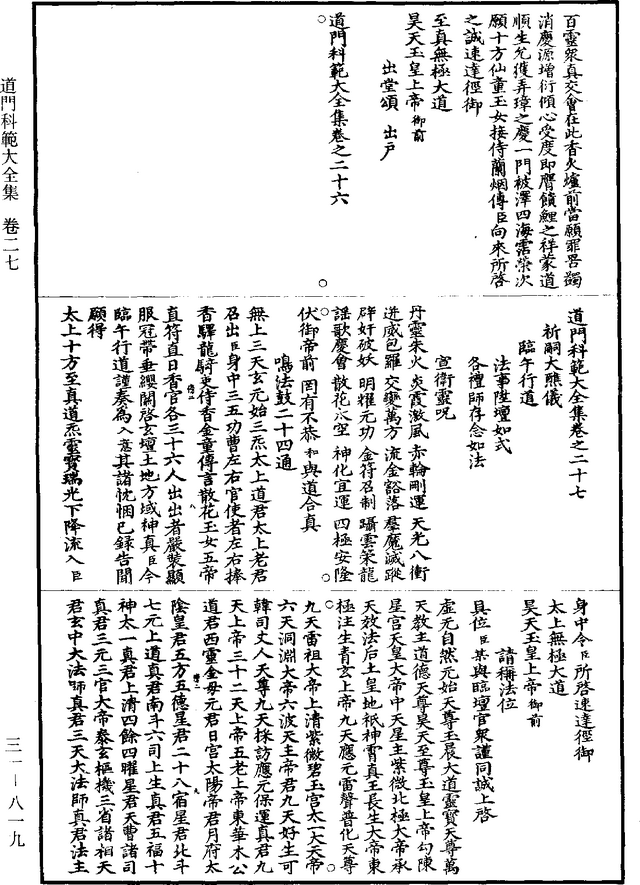 道門科範大全集　卷二七
三一—八一九
百靈衆真交會在此香火爐前當願罪咎蠲
消慶源增衍傾心受度即膺饋鯉之祥蒙道
順生允獲弄璋之慶一門被澤四海霑榮次
願十方仙童玉女接侍蘭烟傳臣向來所啓
之誠速達徑御
至真無極大道
昊天玉皇上帝御前
出堂頌　出戶
道門科範大全集卷之二十六
道門科範大全集卷之二十七
祈嗣大醮儀
臨午行道
法事陞壇如式
各禮師存念如法
宣衛靈呪
丹靈朱火　炎霞激風　赤輪剛運　天光八衝
迸威包羅　交變萬方　流金豁落　羣魔滅蹤
辟奸破妖　明耀元功　金符召制　躡雲策龍
謡歌慶會　散花浮空　神化宜運　四極安隆
伏御帝前　罔有不恭　和與道合真
鳴法鼓二十四通
無上三天玄元始三炁太上道君太上老君
召出臣身中三五功曹左右官使者左右捧
香驛龍騎吏侍香金童傳言散花玉女五帝
直符直日香官各三十六人出出者嚴裝顯
服冠帶垂纓關啓玄壇土地方域神真臣今
臨午行道謹奏為入意其諸忱悃已録告聞
願得
太上十方至真道炁靈寳瑞光下降流入臣
身中令臣所啓速達徑御
太上無極大道
昊天玉皇上帝御前
請稱法位
具位臣某與臨壇官衆謹同誠上啓
虛无自然元始天尊玉晨大道靈寳天尊萬
天教主道德天尊昊天至尊玉皇上帝勾陳
星宮天皇大帝中天星主紫微北極大帝承
天效法后土皇地祇神霄真王長生大帝東
極注生青玄上帝九天應元雷聲普化天尊
九天雷祖大帝上清紫微碧玉宮太一大天帝
六天洞淵大帝六波天主帝君九天好生可
韓司丈人天尊九天採訪應元保運真君九
天上帝三十二天上帝五老上帝東華木公
道君西靈金母元君日宮太陽帝君月府太
陰皇君五方五德星君二十八宿星君北斗
七元上道真君南斗六司上生真君五福十
神太一真君上清四餘四曜星君天曹諸司
真君三元三官大帝泰玄樞機三省諸相天
君玄中大法師真君三天大法師真君法主